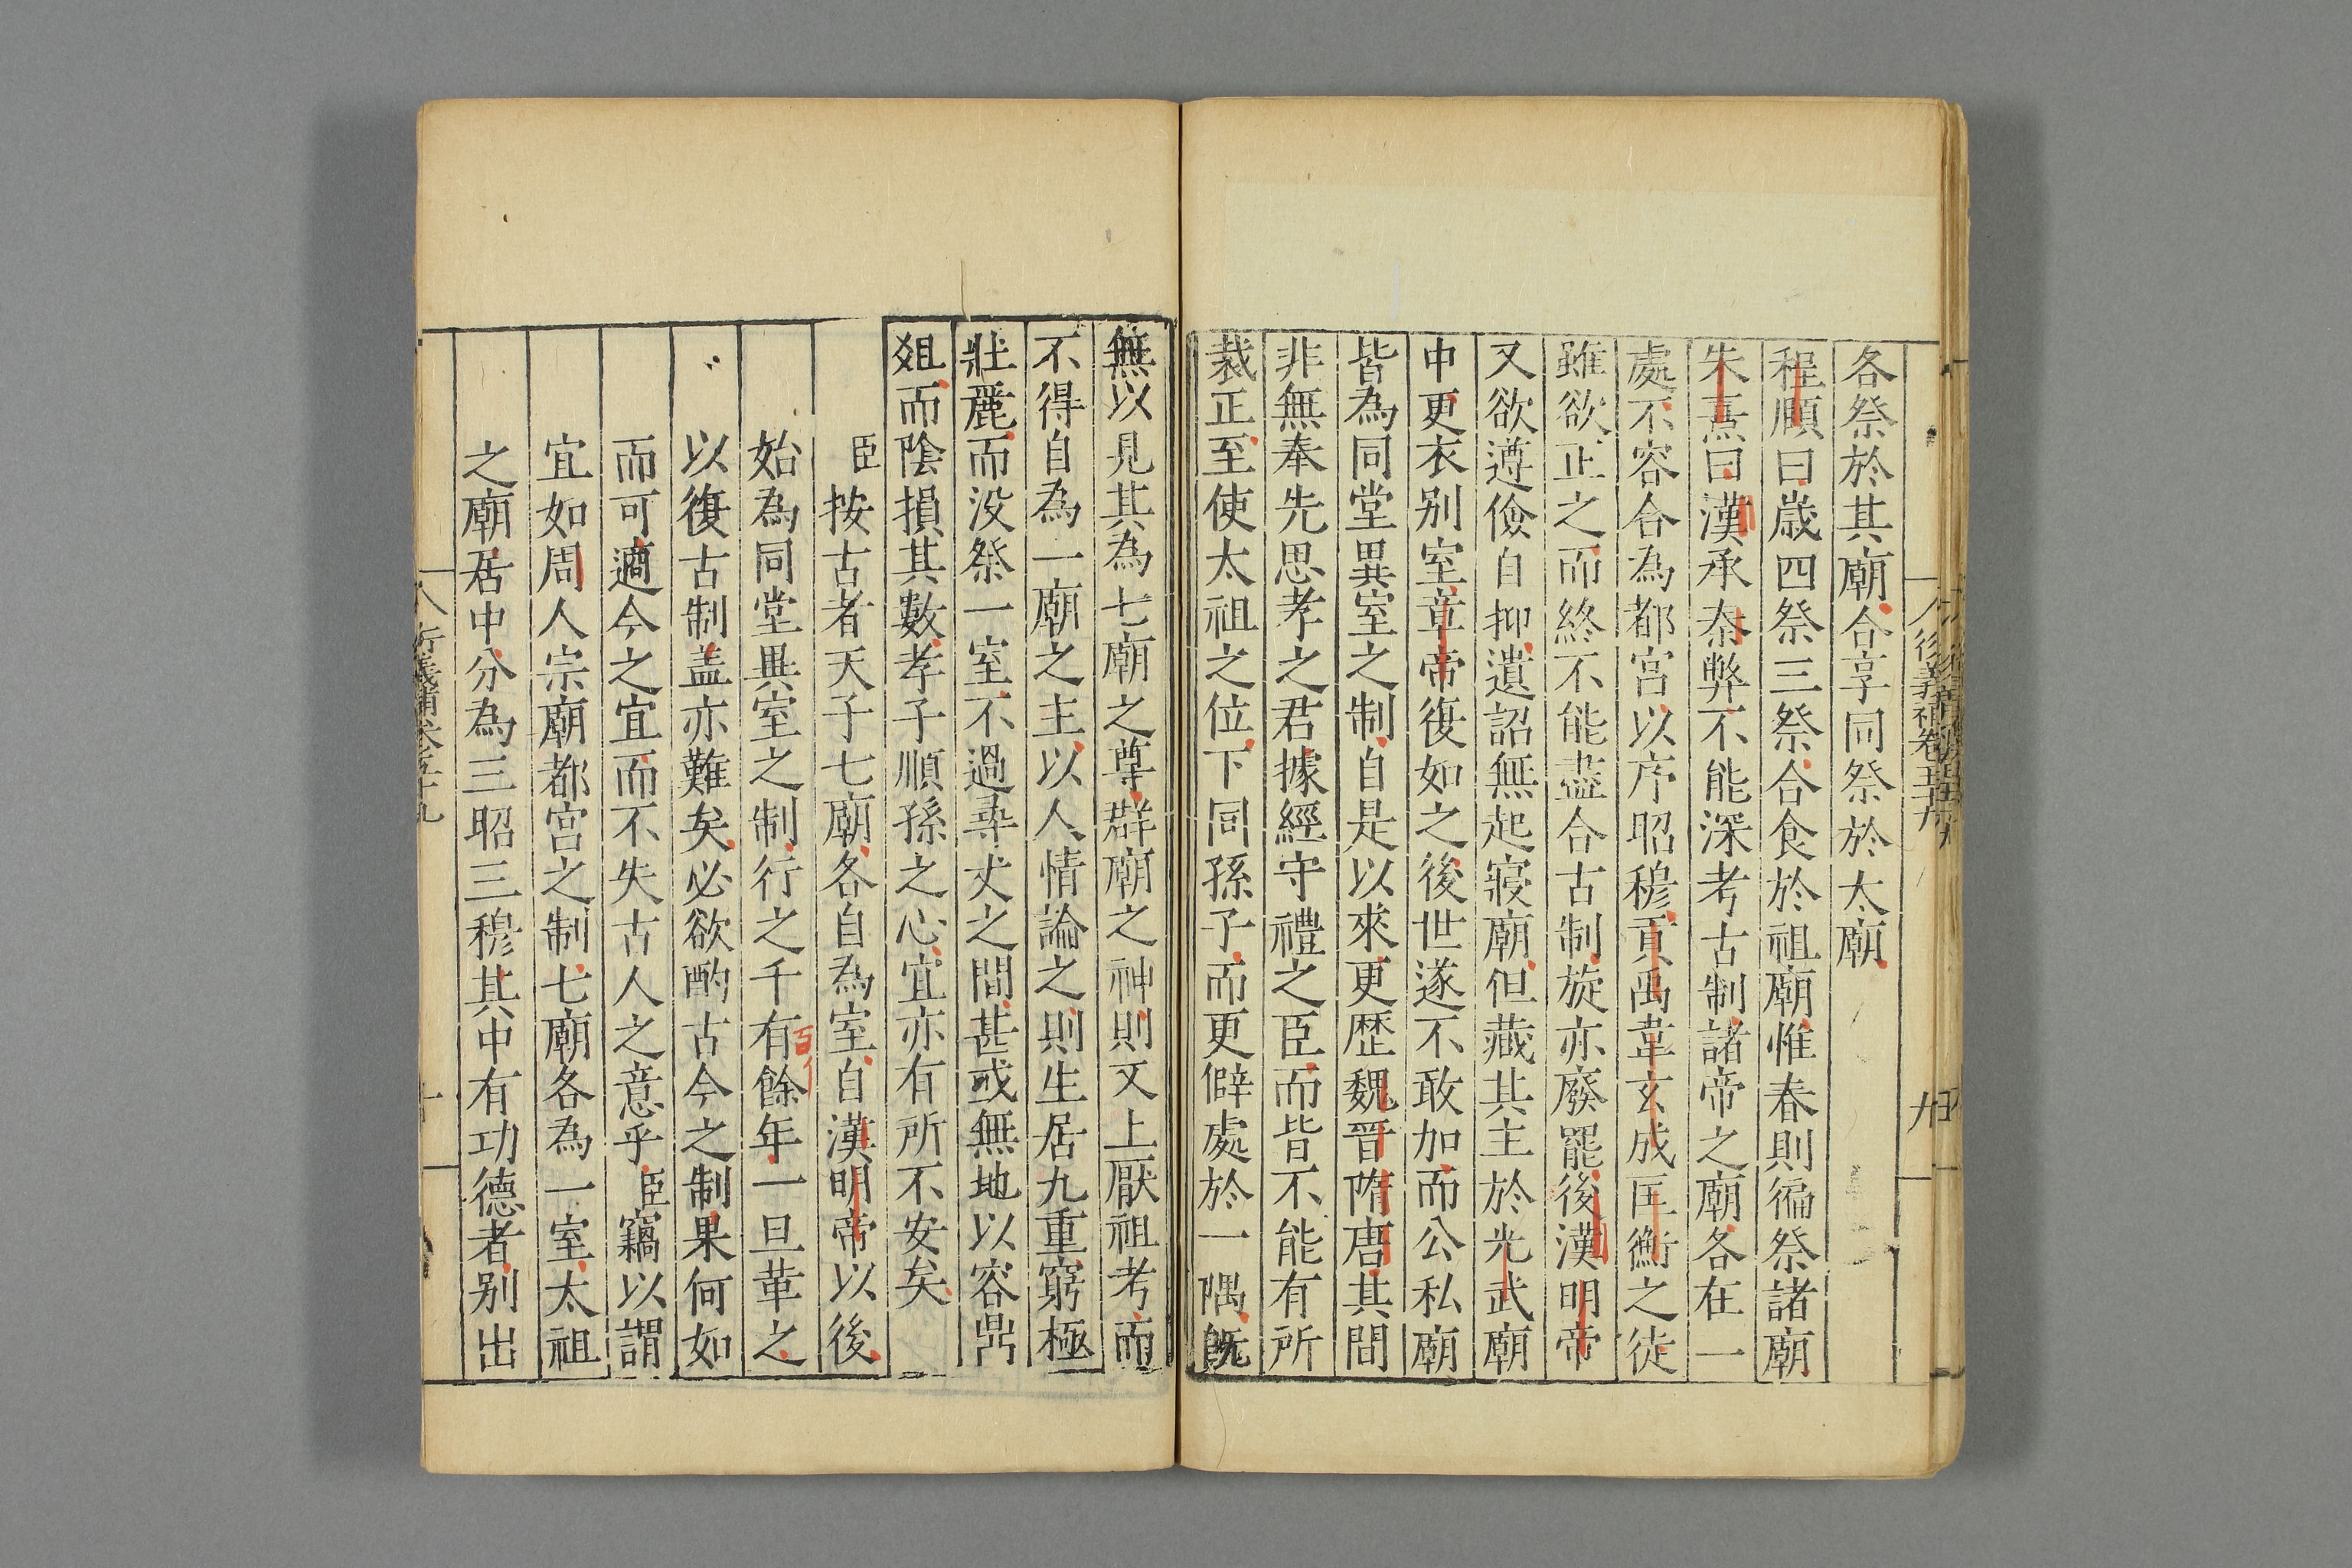 各祭於其廟合享同祭於太廟
程頤曰歲四祭三祭合食於祖廟惟春則徧祭諸廟
朱熹曰漢承秦弊不能深考古制諸帝之廟各在一
處不容合為都宮以序昭穆貢禹韋玄成匡衡之徒
雖欲正之而終不能盡合古制旋亦廢罷後漢明帝
又欲遵儉自抑遺詔無起寢廟但藏其主於光武廟
中更衣别室章帝復如之後世遂不敢加而公私廟
皆為同堂異室之制自是以來更歷魏晉隋唐其間
非無奉先思孝之君據經守禮之臣而皆不能有所
裁正至使太祖之位下同孫子而更僻處於一隅旣
無以見其為七廟之尊群廟之神則又上厭祖考而
不得自為一廟之主以人情論之則生居九重窮極
壯麗而没祭一室不過尋丈之間甚或無地以容鼎
俎而陰損其數孝子順孫之心宜亦有所不安矣
臣按古者天子七廟各自為室自漢明帝以後
始為同堂異室之制行之千有餘年一旦革之
百
以復古制盖亦難矣必欲酌古今之制果何如
而可適今之宜而不失古人之意乎臣竊以謂
宜如周人宗廟都宮之制七廟各為一室太祖
之廟居中分為三昭三穆其中有功德者别出
衍義補卷之五十九
十